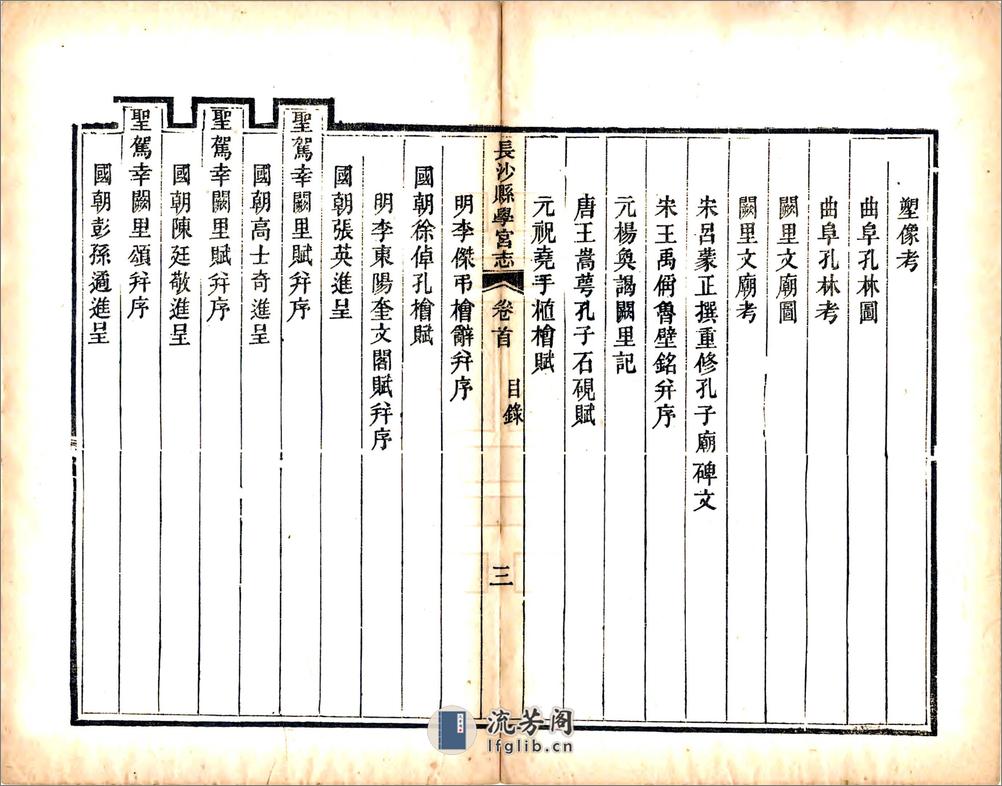 塑像考
曲阜孔林圖
曲阜孔林考
闕里文廟圖
闕里文廟考
宋呂蒙正撰重修孔子廟碑文
宋王禹偁魯壁銘并序
元楊奐謁闕里記
唐王嵩萼孔子石硯賦
元祝堯手植檜賦
長沙縣學宮志
卷首
目錄
三
明李傑弔檜辭并序
國朝徐倬孔檜賦
明李東陽奎文閣賦并序
國朝張英進呈
聖駕幸闕里賦并序
國朝高士奇進呈
聖駕幸闕里賦并序
國朝陳廷敬進呈
聖駕幸闕里頌并序
國朝彭孫遹進呈
流芳阁
lfglib.cn